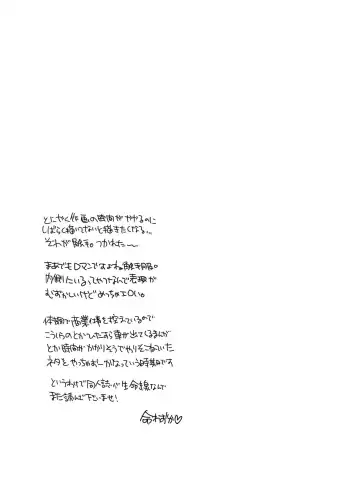 とにかく作画の時間がかかるのに
しばらく描いてないと描きたくなる…
それが触手。つかれた〜
まあでもロマンですよね触手服。
内側にいるってやつなんで表現が
むずかしいけどめっちゃエロい。
体調で商業仕事を控えているので
こういうのとかひたすら車が出てくるまんが
とか時間がかかりそうでやりそこねていた
ネタをやっちゃおーかなっていう時期です
というわけで同人誌が生命線なんで
また読んで下いませ!